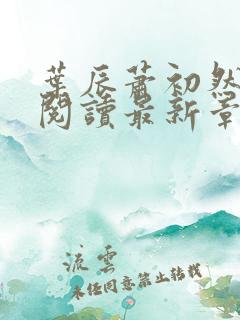 葉辰蕭初然
閱讀最新章
流雲
未經同意禁止轉載